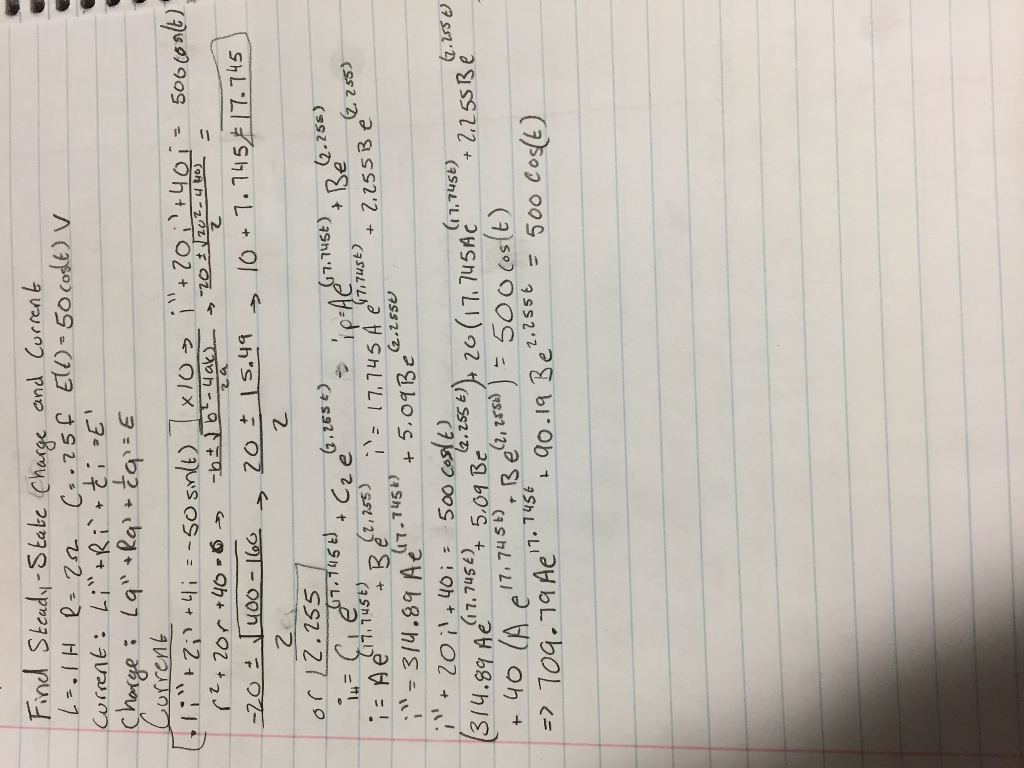 Find Steady-State Charge and Current
L=.1H R=2Ω C=.25f E(t)=50cos(t) V
Current: Li''+Ri'+1/c i=E'
Charge: Lq''+Rq'+1/c q=E
Current
[.1i''+2i'+4i=-50sin(t)]x10 → i''+20i'+40i=500cos(t)
r²+20r+40=0 → -b±√(b²-4ac)/2a → -20±√(20²-4(40))/2 =
-20±√(400-160)/2 → 20±15.49/2 → 10+7.745 = 17.745
or 2.255
iH = C₁e^(17.745t) + C₂e^(2.255t) → ip=Ae^(17.745t) + Be^(2.255)
i=Ae^(17.745t) + Be^(2.255) i'=17.745Ae^(17.745t) + 2.255Be^(2.255)
i''=314.89Ae^(17.745t) + 5.09Be^(2.255t
i''+20i'+40i=500cos(t)
(314.89Ae^(17.745t) + 5.09Be^(2.255t))+20(17.745Ae^(17.745t) + 2.255Be^(2.255t)
+40(Ae^(17.745t) + Be^(2.255t))=500cos(t)
=> 709.79Ae^17.745t + 90.19Be^2.255t = 500cos(t)